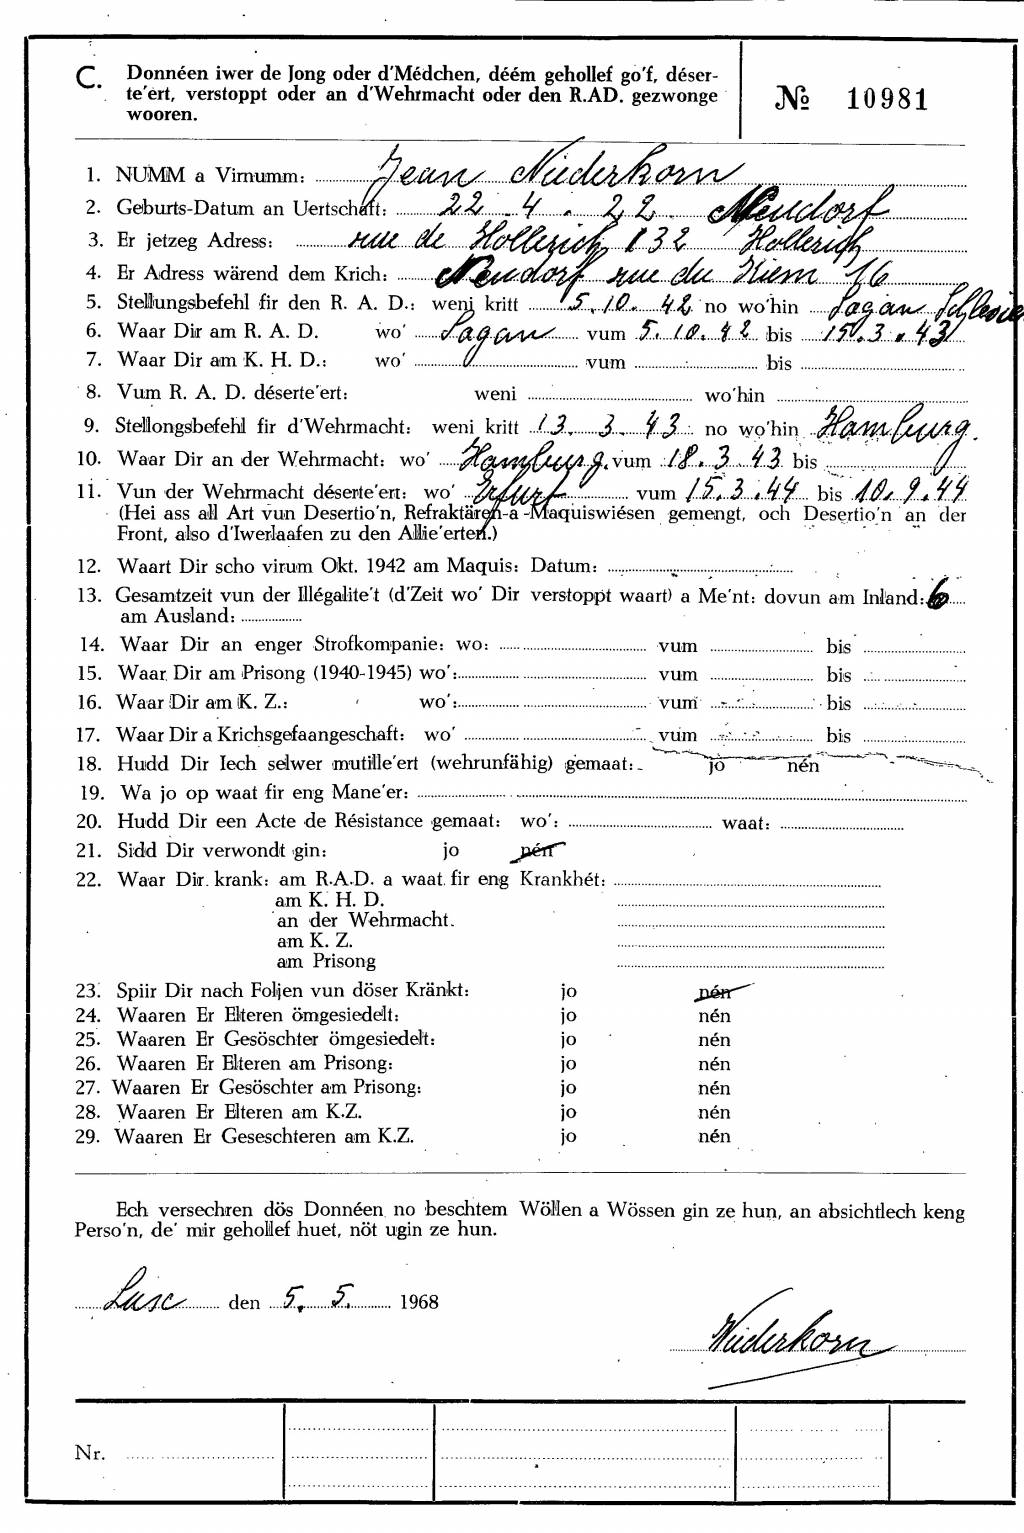 C. Donnéen iwer de Jong oder d'Médchen, déém gehollef go'f, déser-
te'ert, verstoppt oder an d'Wehrmacht oder den R.AD. gezwonge
wooren.
№ 10981
1. NUMM a Virnumm: Jean Niederkorn
2. Geburts-Datum an Uertschaft: 22.4.22. Neudorf
3. Er jetzeg Adress: rue de Hollerich 132 Hollerich
4. Er Adress wärend dem Krich: Neudorf rue du Kiem 16
5. Stellungsbefehl fir den R. A. D.: weni kritt 5.10.42 no wo'hin Sagan Schlesien
6. Waar Dir am R. A. D. wo' Sagan vum 5.10.42 bis 15.3.43
7. Waar Dir am K. H. D.: wo' vum bis
8. Vum R. A. D. déserte'ert: weni wo'hin
9. Stellongsbefehl fir d'Wehrmacht: weni kritt 13.3.43 no wo'hin Hamburg.
10. Waar Dir an der Wehrmacht: wo' Hamburg. vum 18.3.43 bis
11. Vun der Wehrmacht déserte'ert: wo' Erfurt vum 15.3.44 bis 10.9.44
(Hei ass all Art vun Desertio'n, Refraktären-a-Maquiswiésen gemengt, och Desertio'n an der
Front, also d'Iwerlaafen zu den Allie'erten.)
12. Waart Dir scho virum Okt. 1942 am Maquis: Datum:
13. Gesamtzeit vun der Illégalite't (d'Zeit wo' Dir verstoppt waart) a Me'nt: dovun am Inland: 6
am Ausland:
14. Waar Dir an enger Strofkompanie: wo: vum bis
15. Waar Dir am Prisong (1940-1945) wo': vum bis
16. Waar Dir am K. Z.: wo': vum bis
17. Waar Dir a Krichsgefaangeschaft: wo' vum bis
18. Hudd Dir Iech selwer mutille'ert (wehrunfähig) gemaat: jo nén
19. Wa jo op waat fir eng Mane'er:
20. Hudd Dir een Acte de Résistance gemaat: wo': waat:
21. Sidd Dir verwondt gin: jo nén
22. Waar Dir krank: am R.A.D. a waat fir eng Krankhét:
am K. H. D.
an der Wehrmacht.
am K. Z.
am Prisong
23. Spiir Dir nach Foljen vun döser Kränkt: jo nén
24. Waaren Er Elteren ömgesiedelt: jo nén
25. Waaren Er Gesöschter ömgesiedelt: jo nén
26. Waaren Er Elteren am Prisong: jo nén
27. Waaren Er Gesöschter am Prisong: jo nén
28. Waaren Er Elteren am K.Z. jo nén
29. Waaren Er Geseschteren am K.Z. jo nén
Ech versechren dös Donnéen no beschtem Wöllen a Wössen gin ze hun, an absichtlech keng
Perso'n, de' mir gehollef huet, nöt ugin ze hun.
den 5.5. 1968
Niederkorn
Nr.